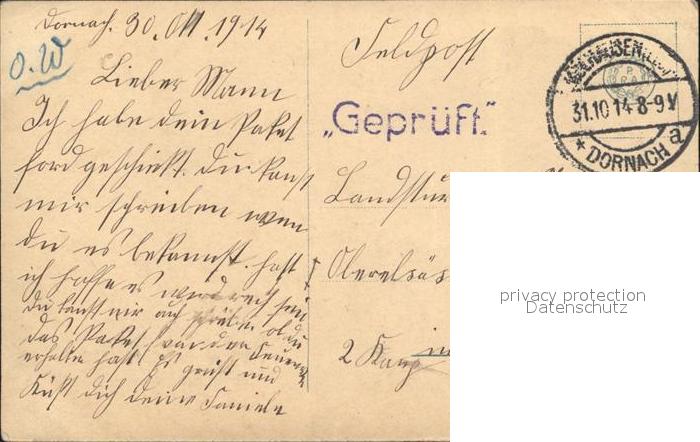 Dornach. 30. Okt. 1914
O. W
Lieber Mann
Ich habe dein Paket
fordgeschickt. du kanst
mir schreiben wen
du es bekomst. hast
ich hoffe es wird recht sein
du kanst mir auch schreiben ob du
das Paket von den
erhalten hast Es grüst und
Küst dich deine Familie
Feldpost
„Geprüft."
MÜLHAUSEN
31.10.14 8-9V
* DORNACH a
Landstur
Oberelsäs
2 Komp
privacy protection
Datenschutz